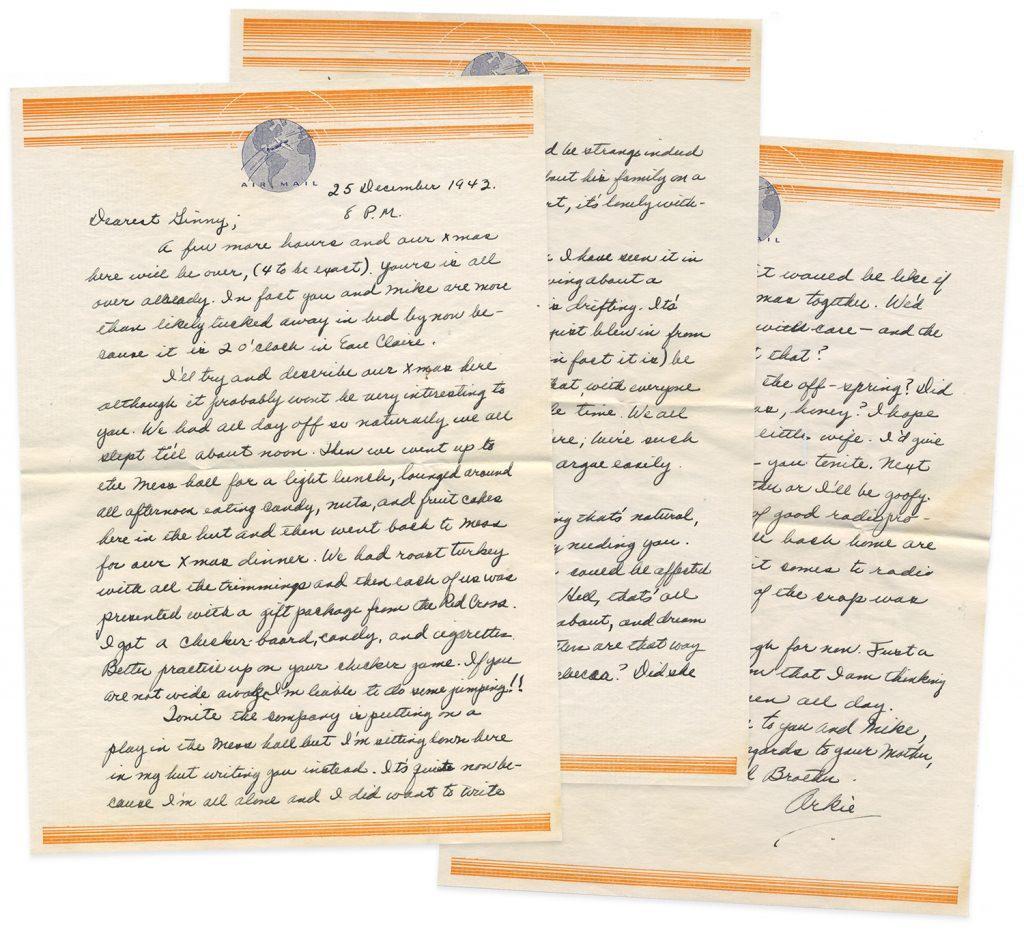 AIR MAIL
25 December 1942.
8 P.M.
Dearest Ginny;
A few more hours and our Xmas
here will be over, (4 to be exact). Yours is all
over already. In fact you and Mike are more
than likely tucked away in bed by now be-
cause it is 2 o'clock in Eau Claire.
I'll try and describe our Xmas here
although it probably wont be very interesting to
you. We had all day off so naturally we all
slept till about noon. Then we went up to
the Mess hall for a light lunch, lounged around
all afternoon eating candy, nuts, and fruit cakes
here in the hut and then went back to Mess
for our Xmas dinner. We had roast turkey
with all the trimmings and then each of us was
presented with a gift package from the Red Cross.
I got a checker-board, candy, and cigarettes.
Better practice up on your checker game. If you
are not wide awake I'm liable to do some jumping!!
Tonite the company is putting on a
play in the Mess hall but I'm sitting down here
in my hut writing you instead. It's quite now be-
cause I'm all alone and I did want to write
d be strange indeed
bout his family on a
rt, it's lonely with-
I have seen it in
ving about a
is drifting. It's
just blew in from
in fact it is) be
hat, with everyone
le time. We all
ere, We're such
argue easily.
ng that's natural,
y needing you.
could be affected
Hell, that's all
about, and dream
tters are that way
ebecca? Did she
IL
it would be like if
mas together. We'd
with care — and the
t that?
the off-spring? Did
as, honey? I hope
little wife. I'd give
- you tonite. Next
ther or I'll be goofy.
of good radio pro-
back home are
it comes to radio
of the crop was
gh for now. Just a
ow that I am thinking
een all day.
to you and Mike,
egards to your Mother,
d Brother.
Arkie